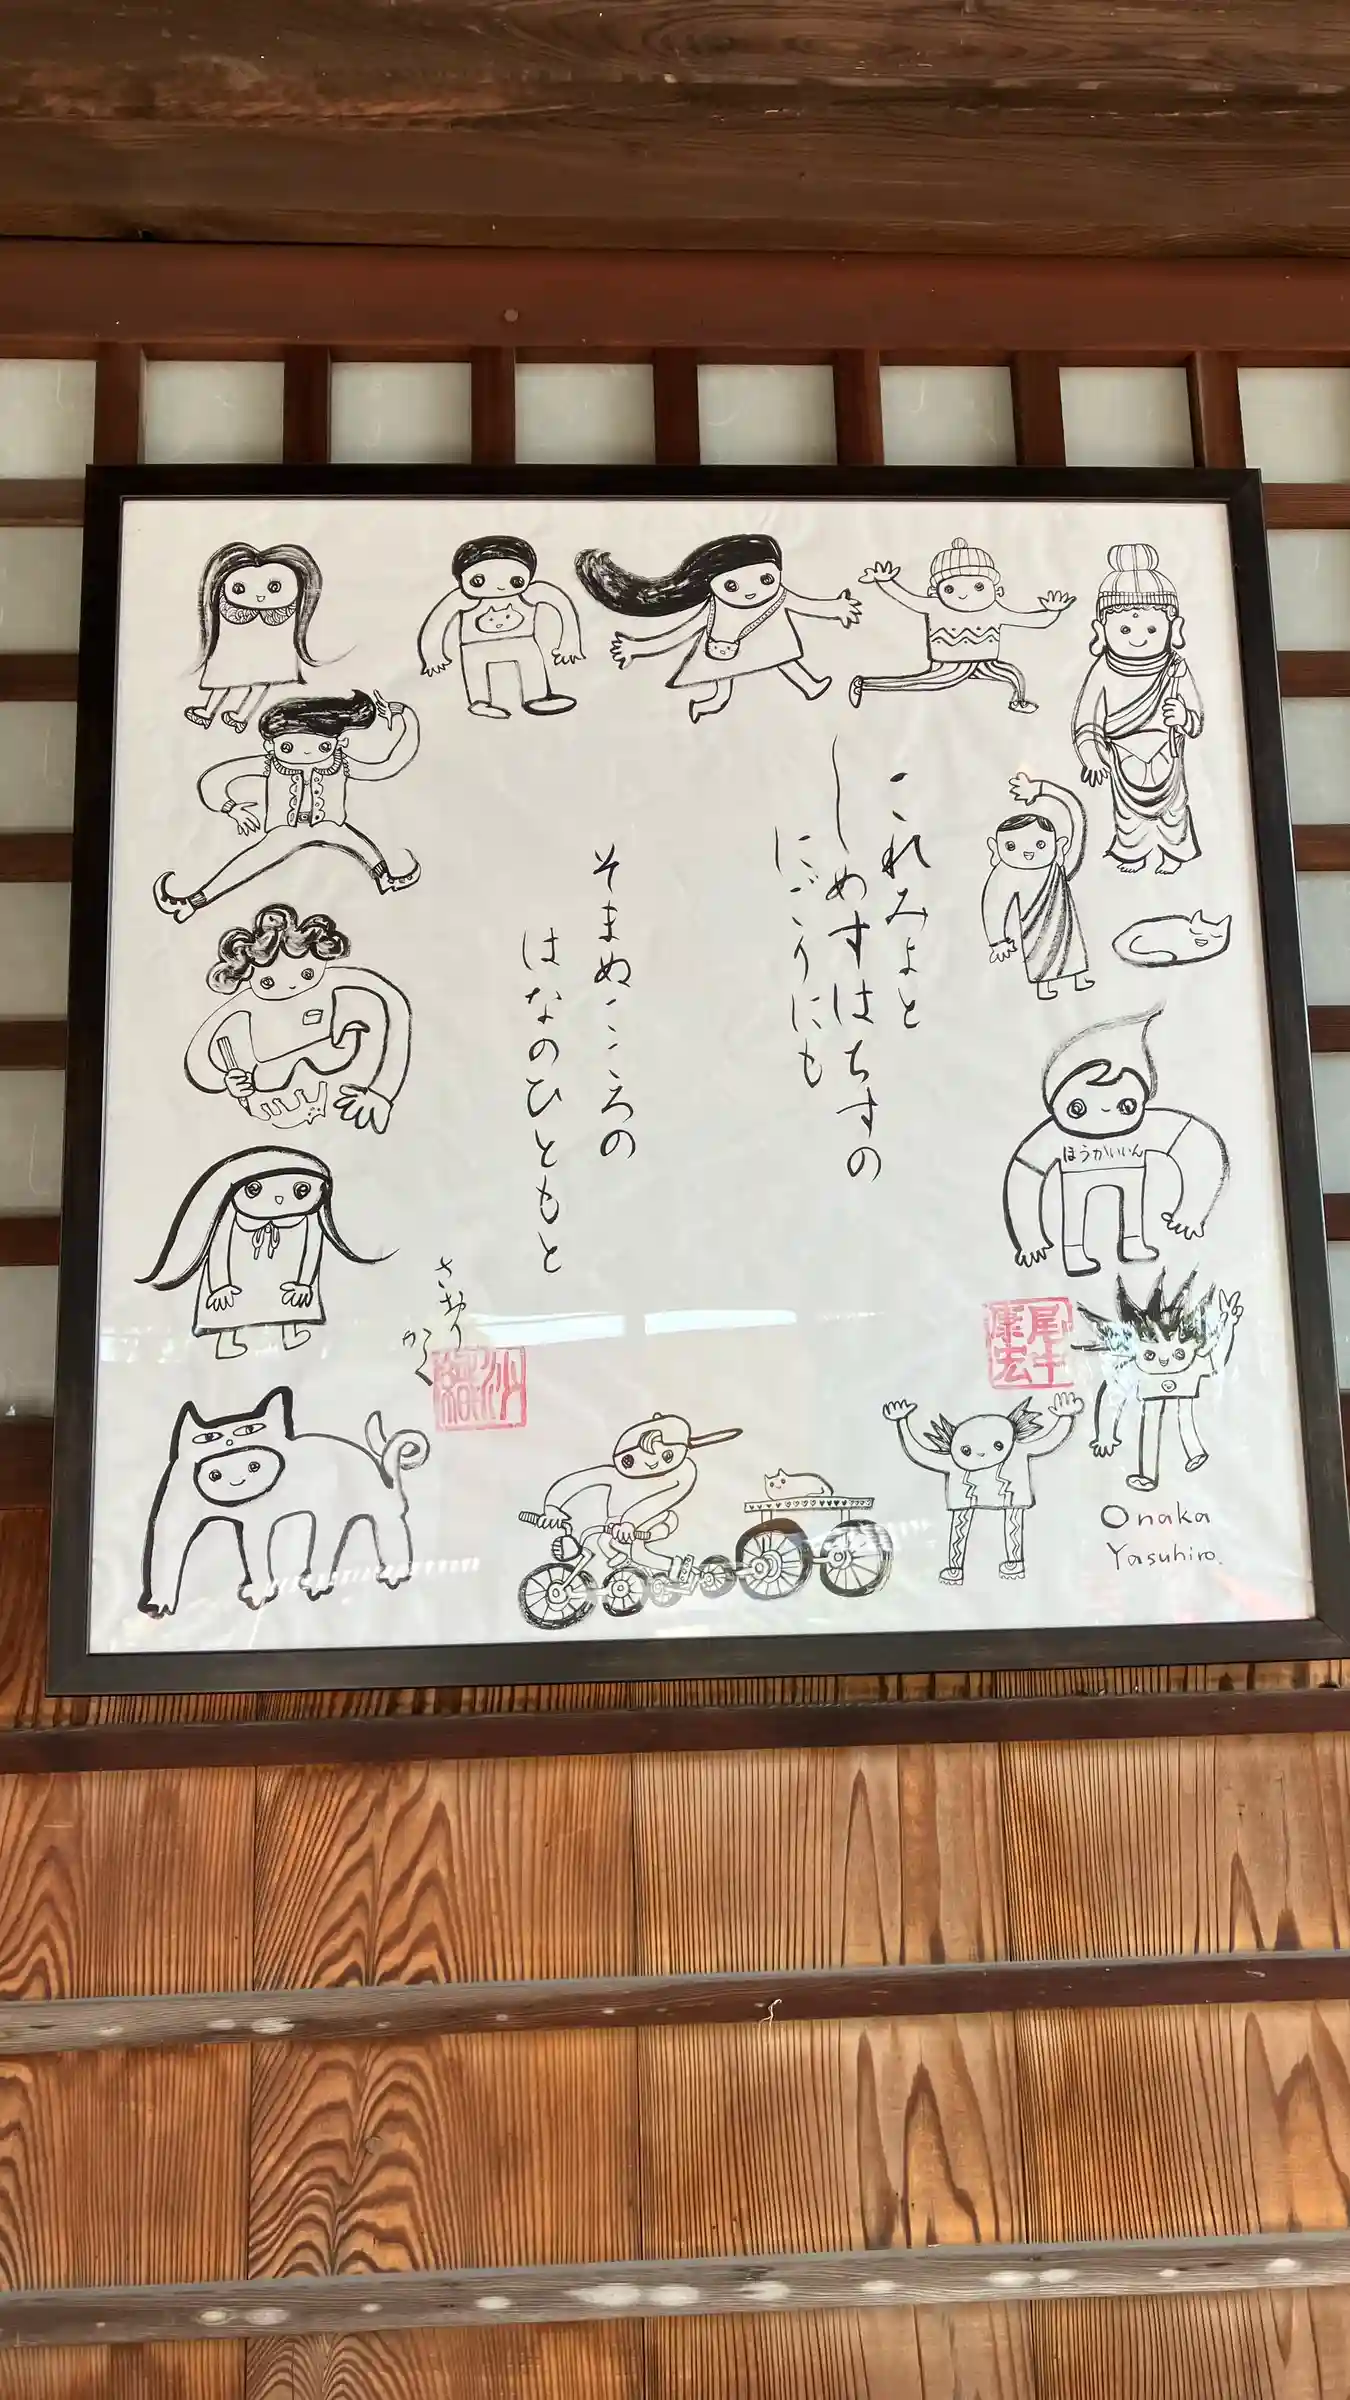 これみよと
しめすはちすの
にごりにも
そまぬこころの
はなのひともと
さおり
かく
ほうかいいん
尾牛
康宏
Onaka
Yasuhiro.